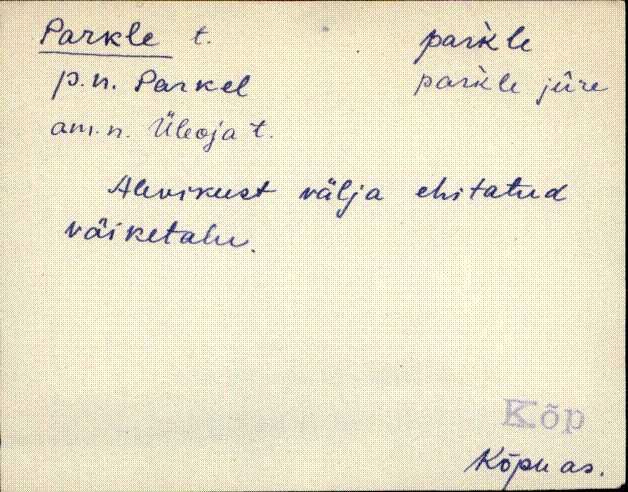 Parkle t. parkle
p.n. Parkel parkle jüre
am.n. Üleoja t.
Alevikust välja ehitatud
väiketalu.
Kõp
Kõpu as.